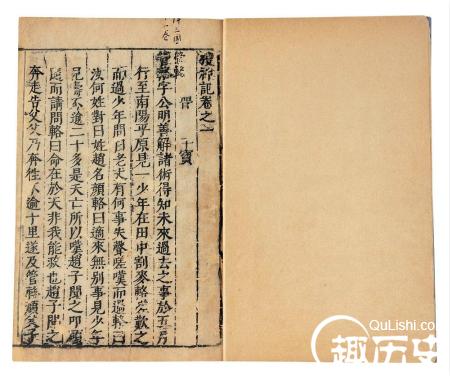 搜神記卷之一
晉 干寶
管輅字公明善解諸術得知未來過去之事於五月
行至南陽平原見一少年在田中割麥輅嗟歎之
而過少年問曰老丈有何事失聲嗟嘆而過輅曰
汝何姓對曰姓趙名顔輅曰適來無別事見少
壽不逾二十多是夭亡所以嘆趙子聞之叩
而請問輅曰命在於天非我能救也趙子聞之
奔走告父父乃奔往不逾十里遂及管輅
管輅
QuLishi.com
趣历史